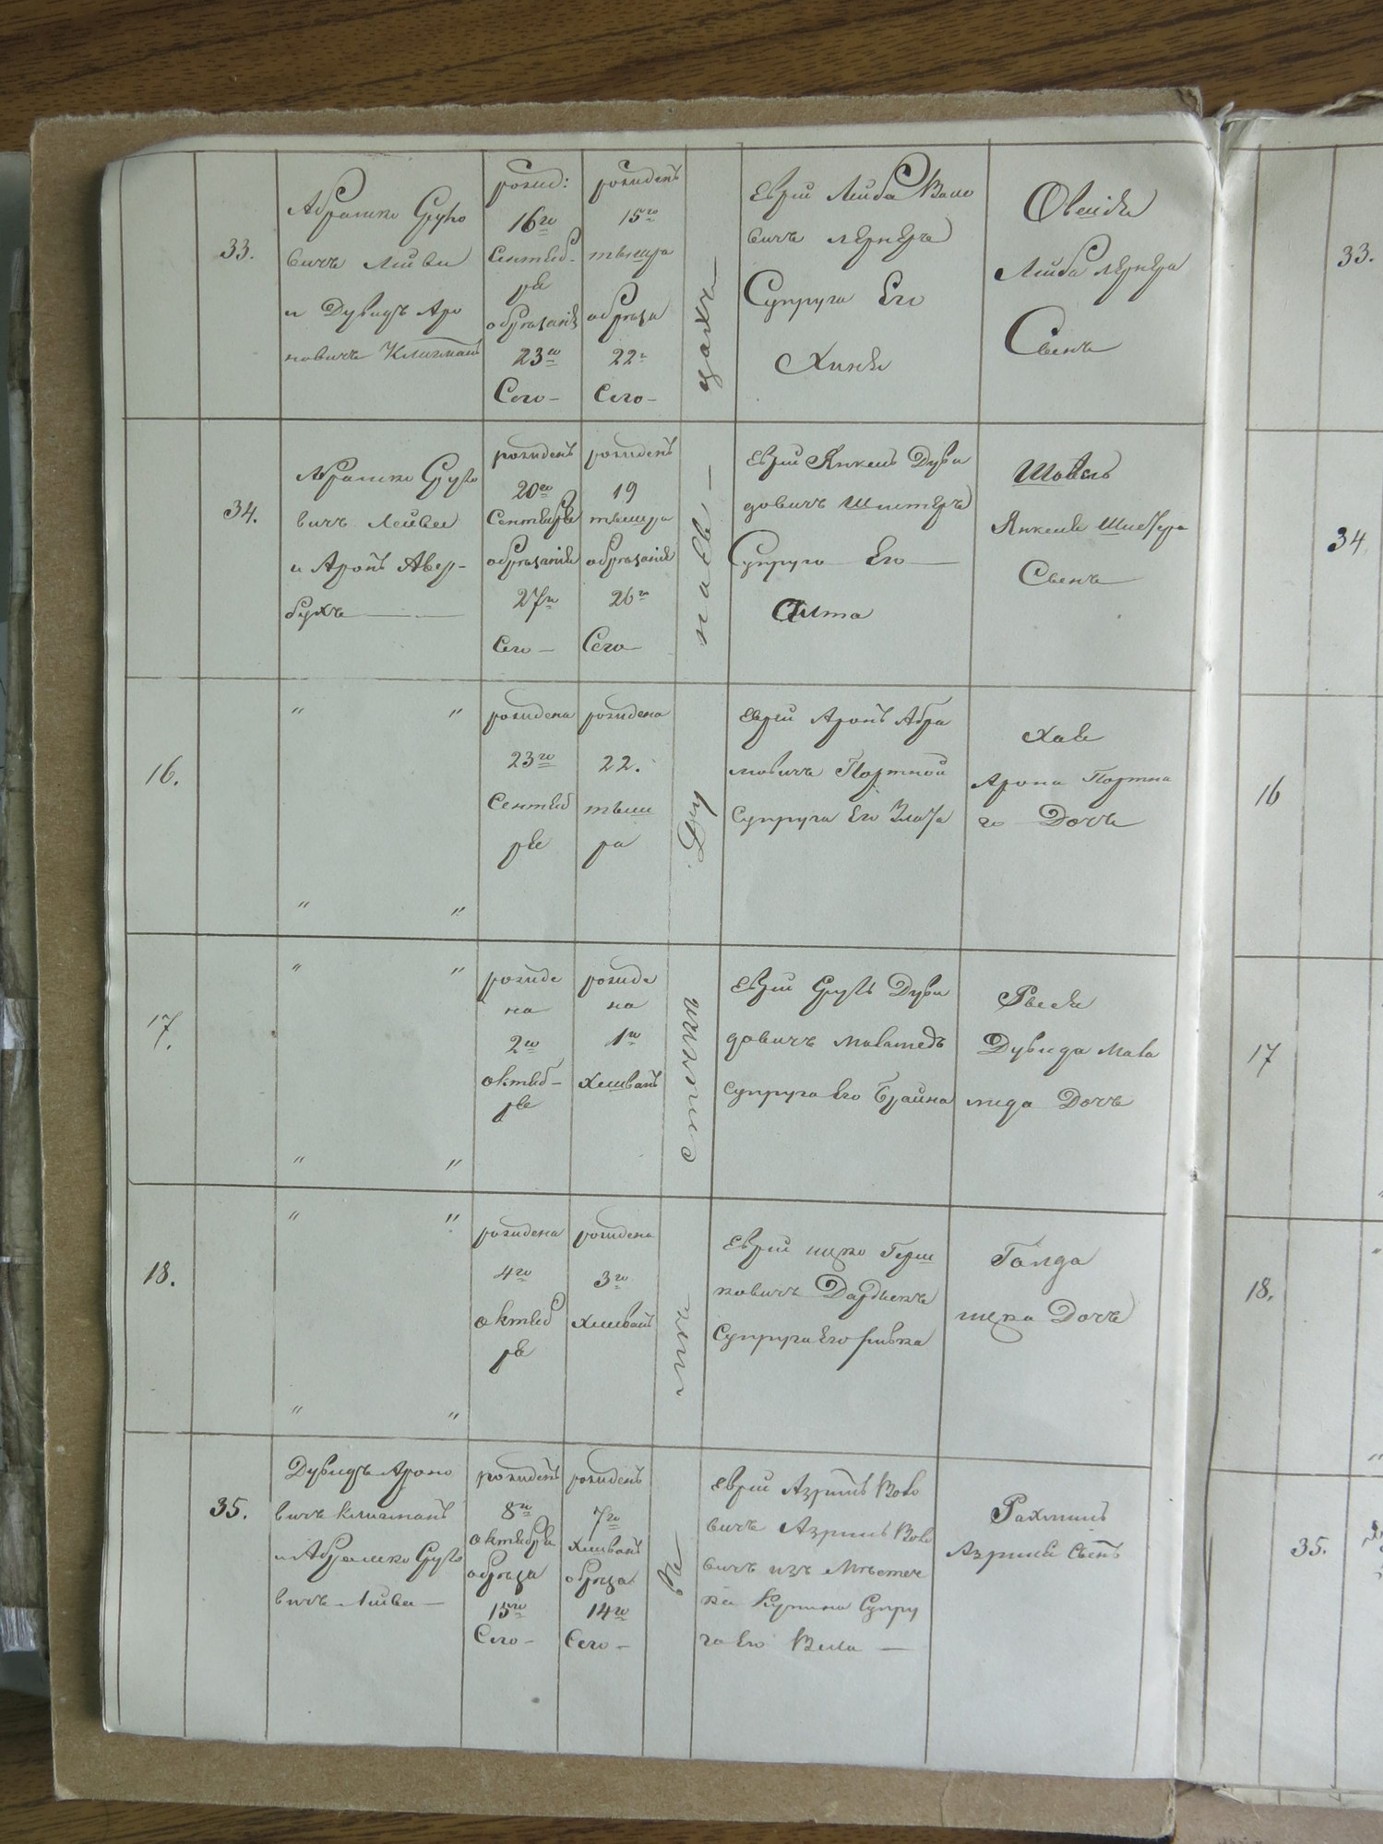 33.
Абрамко Сруло
вичъ Лейви
и Дувидъ Аро
новичъ Клигманъ
рожид:
16го
Сентяб-
ря
обрезанія
23го
Сего-
рожиденъ
15го
тышра
обреза
22г
Сего-
Еврей Лейба Воль
вичъ Лернеръ
Супруга Его
Хинія
Овшія
Лейба Лернера
Сынъ
33.
34.
Абрамко Сруло
вичъ Лейви
и Аронъ Авер-
бухъ
рожиденъ
20го
Сентября
обрезанія
27го
Сего-
рожиденъ
19
тышра
обрезанія
26го
Сего
Еврей Янкель Дуви
довичъ
Супруга Его
Янкеля
Сынъ
34
16.
" "
рожидена
23го
Сентяб
ря
рожидена
22.
тыш
ра
Еврей Аронъ Абра
мовичъ Портной
Супруга Его
" "
Хая
Арона Портна
го Дочь
16
17.
" "
рожиде
на
2го
октяб-
ря
рожиде
на
1го
Хешванъ
Еврей Сруль Дуви
довичъ Маламедъ
супруга Его Брайна
" "
Дувида Мала
меда Дочь
17
18.
" "
рожидена
4го
октяб
ря
рожидена
3го
Хешванъ
Еврей Ицко Герш
ковичъ
Супруга Его Ривка
" "
Голда
Ицка Дочь
18.
35.
Дувидъ Ароно
вичъ Клигманъ
и Абрамко Сруло
вичъ Лейви
рожиденъ
8го
октября
обреза
15го
Сего-
рожиденъ
7го
хешванъ
обреза
14го
Сего-
Еврей Азриль Воль
вичъ Азриль Воль
вичъ изъ Местеч
ка Купина Супру
га Его Бейла
Рахмиль
Азриля Сынъ
35.